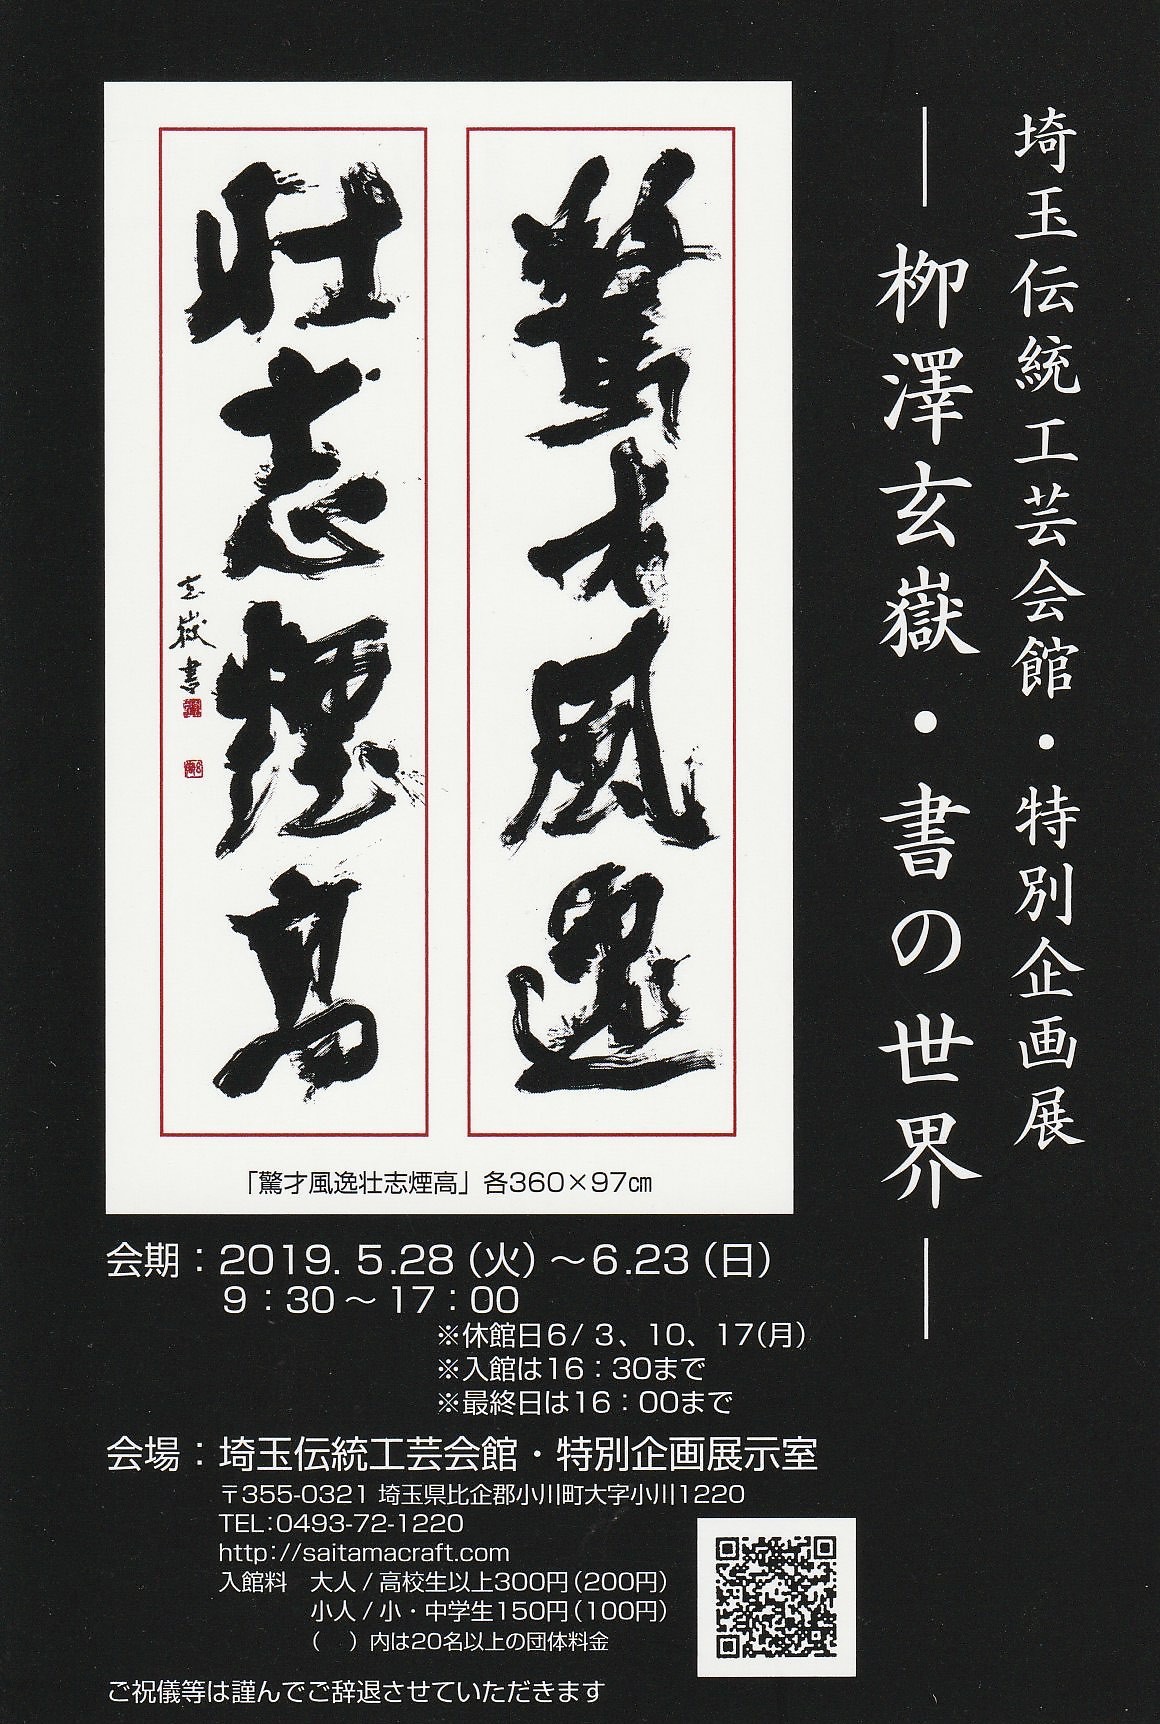 埼玉伝統工芸会館・特別企画展
―柳澤玄嶽・書の世界―
驚才風逸
壮志煙高
玄嶽書
「驚才風逸壮志煙高」各360×97㎝
会期：2019. 5.28（火）～6.23（日）
9：30～17：00
※休館日6/ 3、10、17(月)
※入館は16：30まで
※最終日は16：00まで
会場：埼玉伝統工芸会館・特別企画展示室
〒355-0321 埼玉県比企郡小川町大字小川1220
TEL:0493-72-1220
http://saitamacraft.com
入館料　大人 / 高校生以上300円（200円）
小人 / 小・中学生150円（100円）
（　）内は20名以上の団体料金
ご祝儀等は謹んでご辞退させていただきます